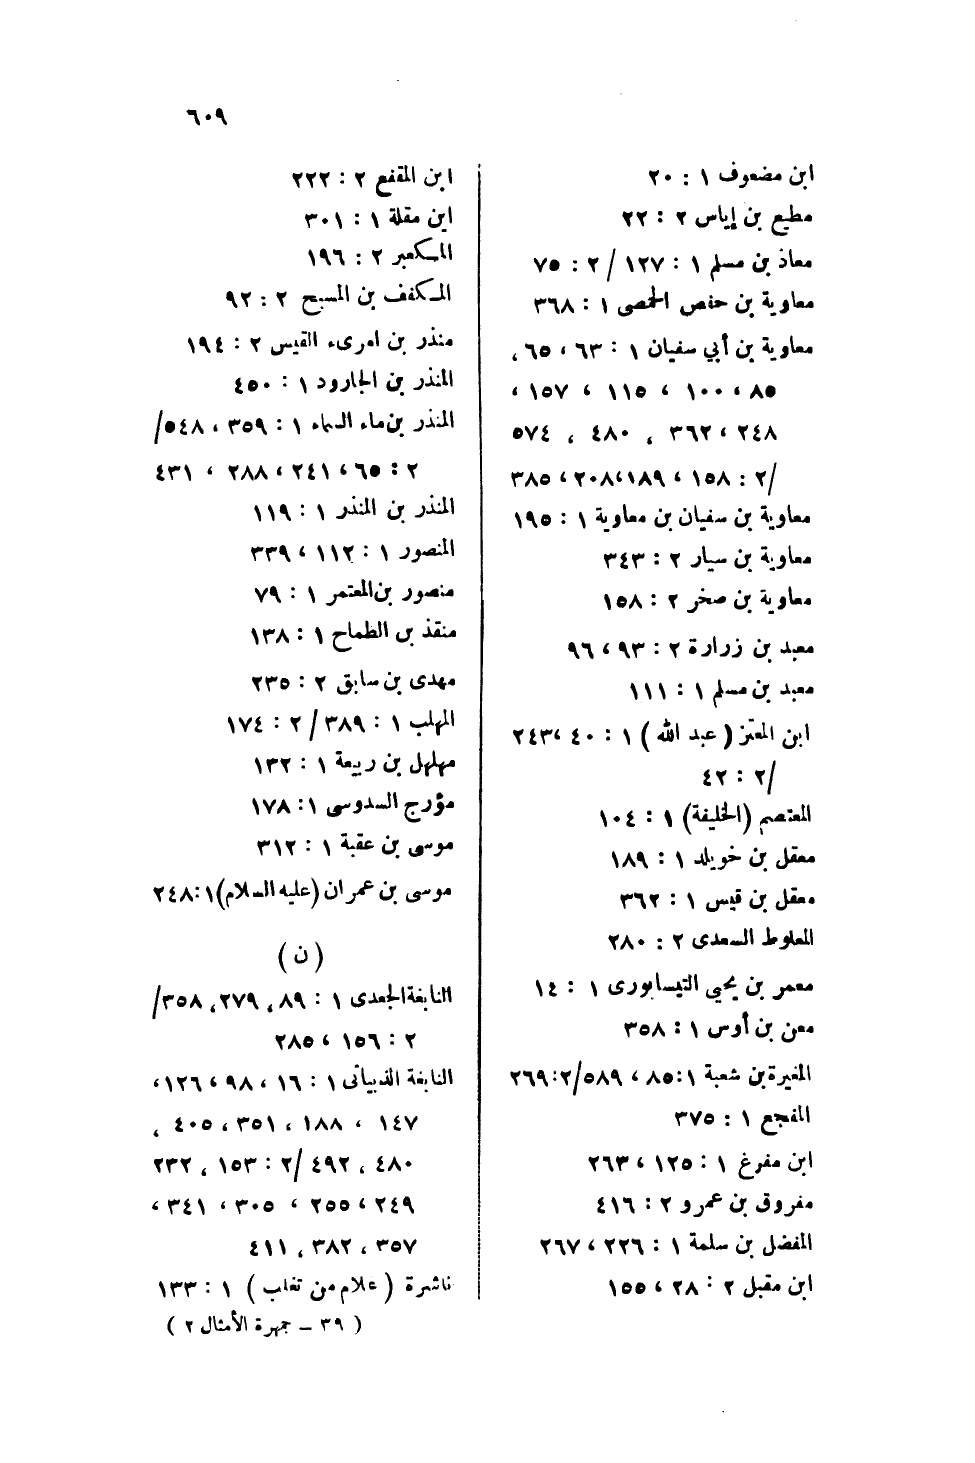 ٦٠٩
ابن مضعوف ١ : ٢٠
مطيع بن إياس ٢ : ٢٢
معاذ بن مسلم ١ : ١٢٧ / ٢ : ٧٥
معاوية بن حفص الحمصى ١ : ٣٦٨
معاوية بن أبي سفيان ١ : ٦٣ ، ٦٥ ،
٨٥ ، ١٠٠ ، ١١٥ ، ١٥٧ ،
٢٤٨ ، ٣٦٢ ، ٤٨٠ ، ٥٧٤
/٢ : ١٥٨ ، ١٨٩ ، ٢٠٨ ، ٣٨٥
معاوية بن سفيان بن معاوية ١ : ١٩٥
معاوية بن سيار ٢ : ٣٤٣
معاوية بن صخر ٢ : ١٥٨
معبد بن زرارة ٢ : ٩٣ ، ٩٦
معبد بن مسلم ١ : ١١١
ابن المعتز ( عبد الله ) ١ : ٤٠ ، ٢٤٣
/٢ : ٤٢
المعتصم (الخليفة) ١ : ١٠٤
معقل بن خويلد ١ : ١٨٩
معقل بن قيس ١ : ٣٦٢
المعلوط السعدى ٢ : ٢٨٠
معمر بن يحيي التيسابورى ١ : ١٤
معن بن أوس ١ : ٣٥٨
المغيرة بن شعبة ١ : ٨٥ ، ٥٨٩/٢ : ٢٦٩
المفجع ١ : ٣٧٥
ابن مفرغ ١ : ١٢٥ ، ٢٦٣
مفروق بن عمرو ٢ : ٤١٦
المفضل بن سلمة ١ : ٢٢٦ ، ٢٦٧
ابن مقبل ٢ : ٢٨ ، ١٥٥
ابن المقفع ٢ : ٢٢٢
ابن مقلة ١ : ٣٠١
المكعبر ٢ : ١٩٦
المكفف بن المسبح ٢ : ٩٢
منذر بن امرىء القيس ٢ : ١٩٤
المنذر بن الجارود ١ : ٤٥٠
المنذر بن ماء السماء ١ : ٣٥٩ ، ٥٤٨/
٢ : ٦٥ ، ٢٤١ ، ٢٨٨ ، ٤٣١
المنذر بن المنذر ١ : ١١٩
المنصور ١ : ١١٢ ، ٣٣٩
منصور بن المعتمر ١ : ٧٩
منقذ بن الطماح ١ : ١٣٨
مهدى بن سابق ٢ : ٢٣٥
المهلب ١ : ٣٨٩ / ٢ : ١٧٤
مهلهل بن ربيعة ١ : ١٣٢
مؤرج السدوسى ١ : ١٧٨
موسى بن عقبة ١ : ٣١٢
موسى بن عمران (عليه السلام) ١ : ٢٤٨
( ن )
النابغة الجعدى ١ : ٨٩ ، ٢٧٩ ، ٣٥٨/
٢ : ١٥٦ ، ٢٨٥
النابغة الذبيانى ١ : ١٦ ، ٩٨ ، ١٢٦ ،
١٤٧ ، ١٨٨ ، ٣٥١ ، ٤٠٥ ،
٤٨٠ ، ٤٩٢ /٢ : ١٥٣ ، ٢٣٢
٢٤٩ ، ٢٥٥ ، ٣٠٥ ، ٣٤١ ،
٣٥٧ ، ٣٨٢ ، ٤١١
ناشرة ( غلام من تغلب ) ١ : ١٣٣
( ٣٩ – جمهرة الأمثال ٢ )